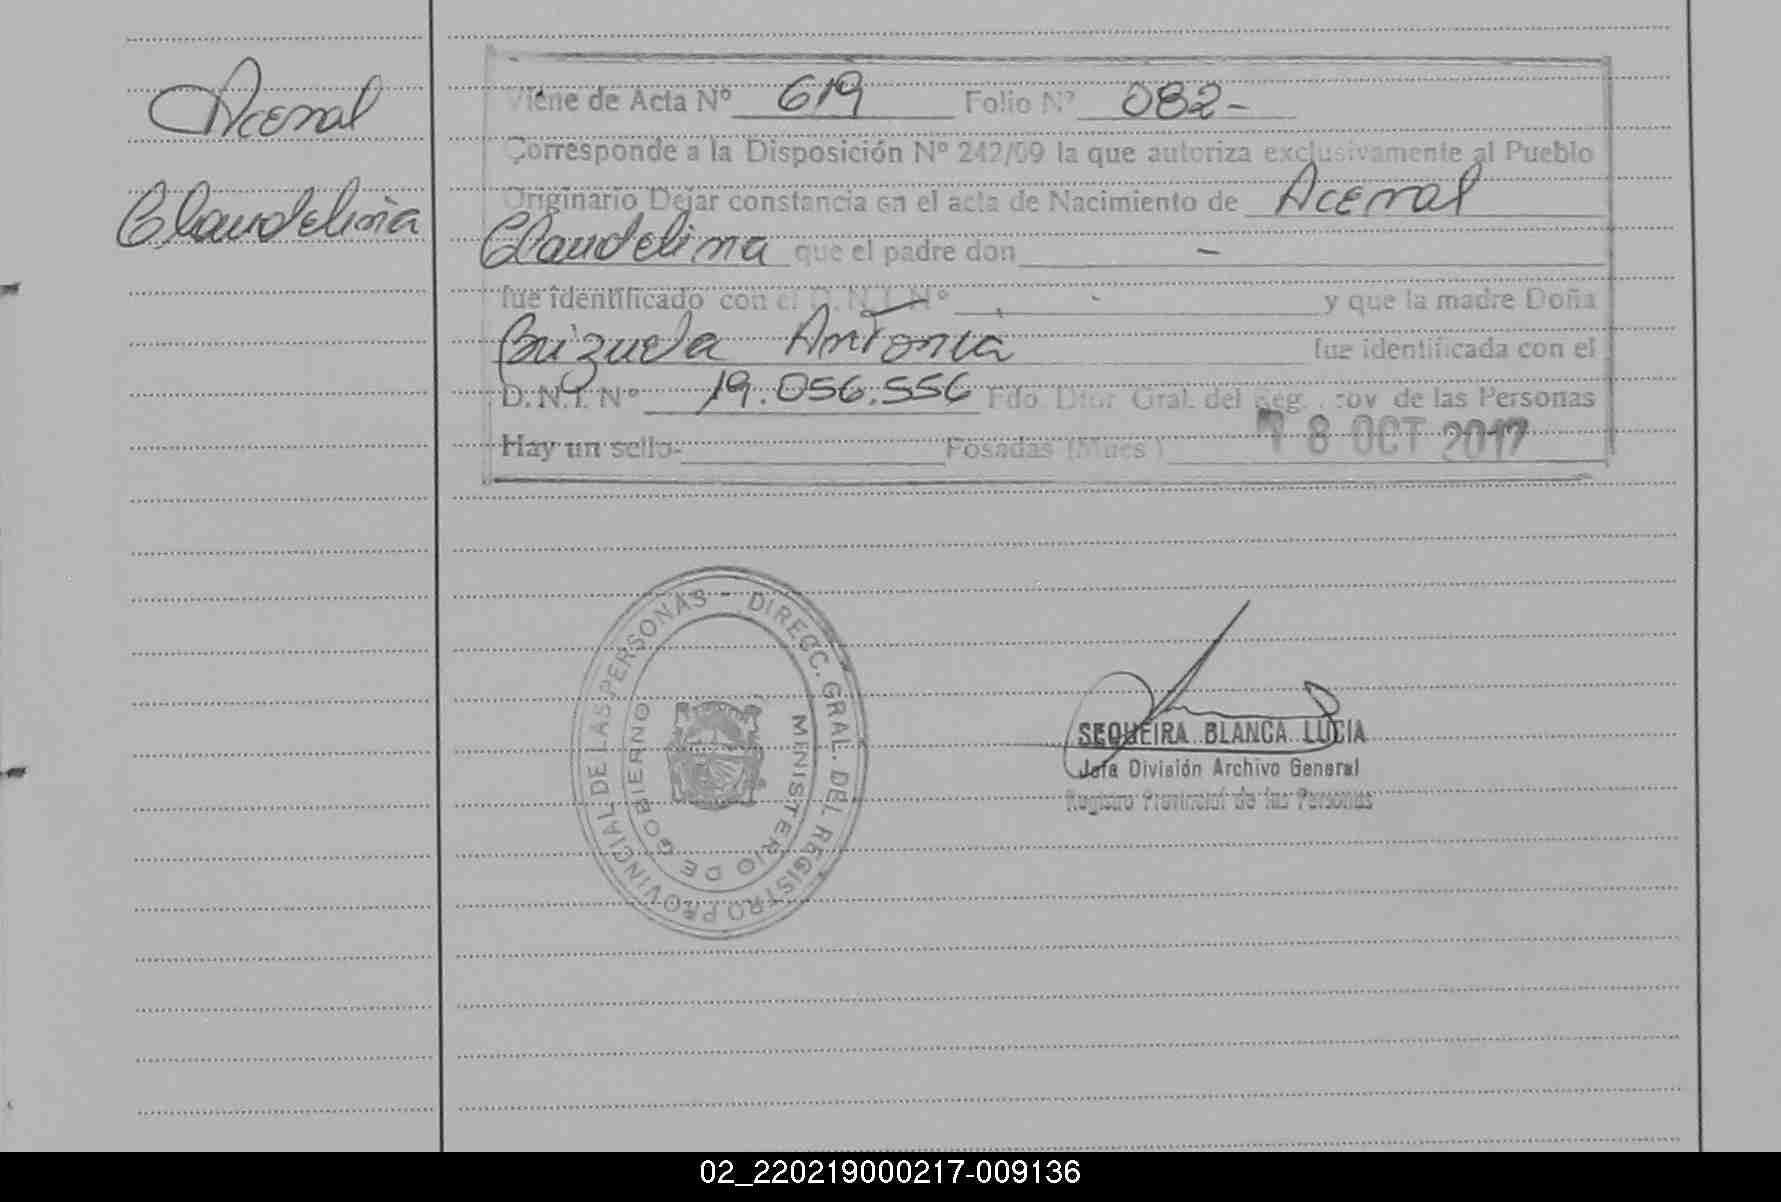 Acenal
Claudelina
Viene de Acta Nº 619 Folio Nº 082-
Corresponde a la Disposición Nº 242/09 la que autoriza exclusivamente al Pueblo
Originario Dejar constancia en el acta de Nacimiento de Acenal
Claudelina que el padre don -
fue identificado con el D.N.I. Nº - y que la madre Doña
Brizuela Antonia fue identificada con el
D.N.I. Nº 19.056.556 Fdo. Dtor Gral. del Reg. Prov de las Personas
Hay un sello- Posadas (Mnes) 18 OCT 2017
DIRECC. GRAL. DEL REGISTRO PROVINCIAL DE LAS PERSONAS -
MINISTERIO DE GOBIERNO
SEQUEIRA BLANCA LUCIA
Jefa División Archivo General
Registro Provincial de las Personas
02_220219000217-009136